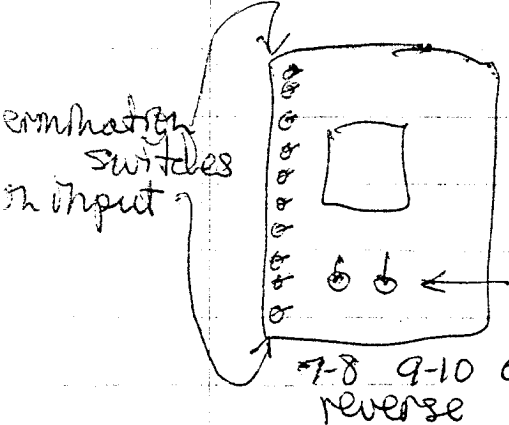 ermination
switches
on input
7-8 9-10
reverse